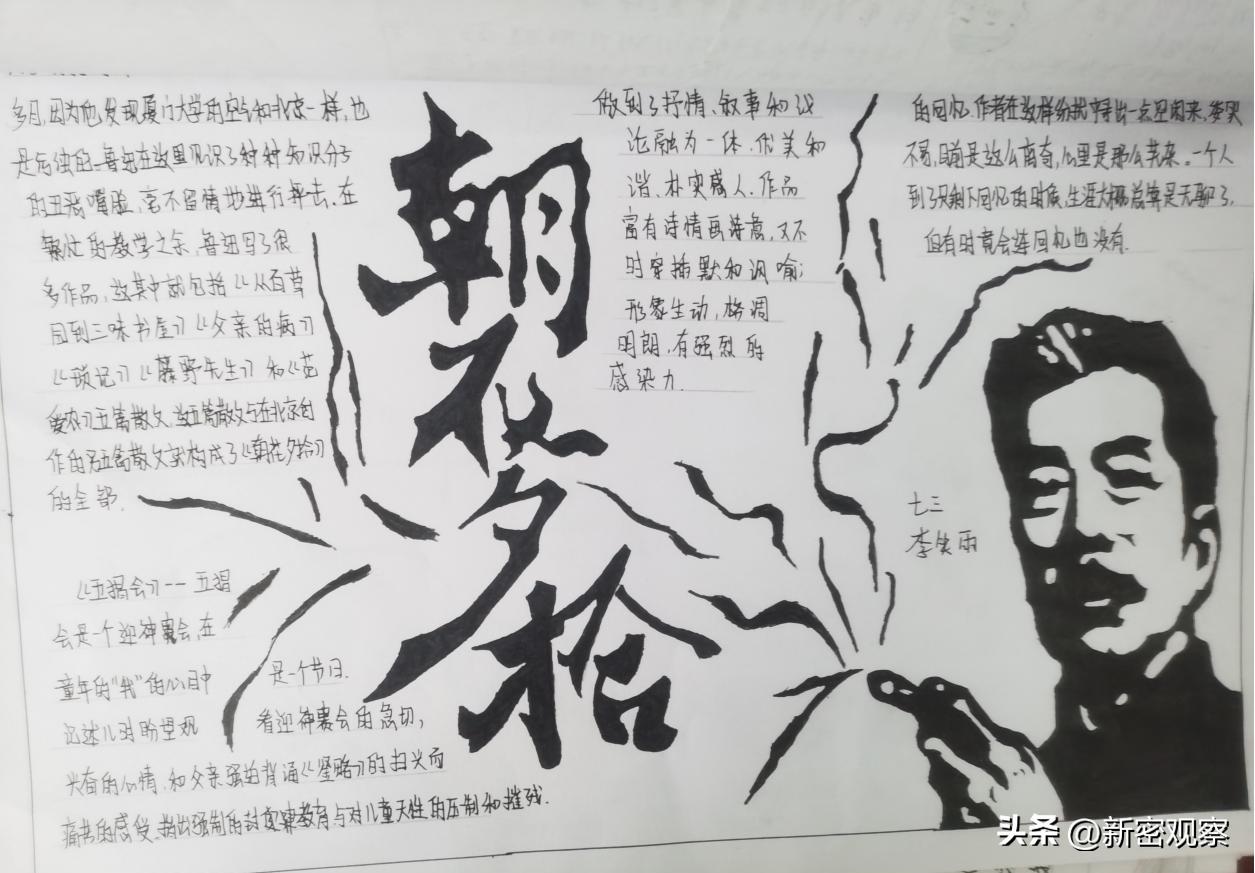 多月,因为他发现厦门大学的空气和北京一样,也
是污浊的.鲁迅在这里见识了种种知识分子
的丑恶嘴脸,毫不留情地进行抨击.在
繁忙的教学之余,鲁迅写了很
多作品,这其中就包括《从百草
园到三味书屋》《父亲的病》
《琐记》《藤野先生》和《范
爱农》五篇散文,这五篇散文与在北京创
作的另五篇散文就构成了《朝花夕拾》
的全部.
《五猖会》--五猖
会是一个迎神赛会,在
童年的"我"的心目中
是一个节日.
记述儿时盼望观
看迎神赛会的急切,
兴奋的心情,和父亲强迫背诵《鉴略》的扫兴而
痛苦的感受.指出强制的封建教育与对儿童天性的压制和摧残.
朝花夕拾
做到了抒情、叙事和议
论融为一体.优美和
谐.朴实感人.作品
富有诗情画意,又不
时穿插默和讽喻;
形象生动,格调
明朗,有强烈的
感染力.
的回忆.作者在这样纷扰中寻出一点空闲来,委实
不易,目前是这么离奇,心里是那么芜杂.一个人
到了只剩下回忆的时候,生涯大概总算是无聊了,
但有时竟会连回忆也没有.
七三
李笑雨
头条 @新密观察